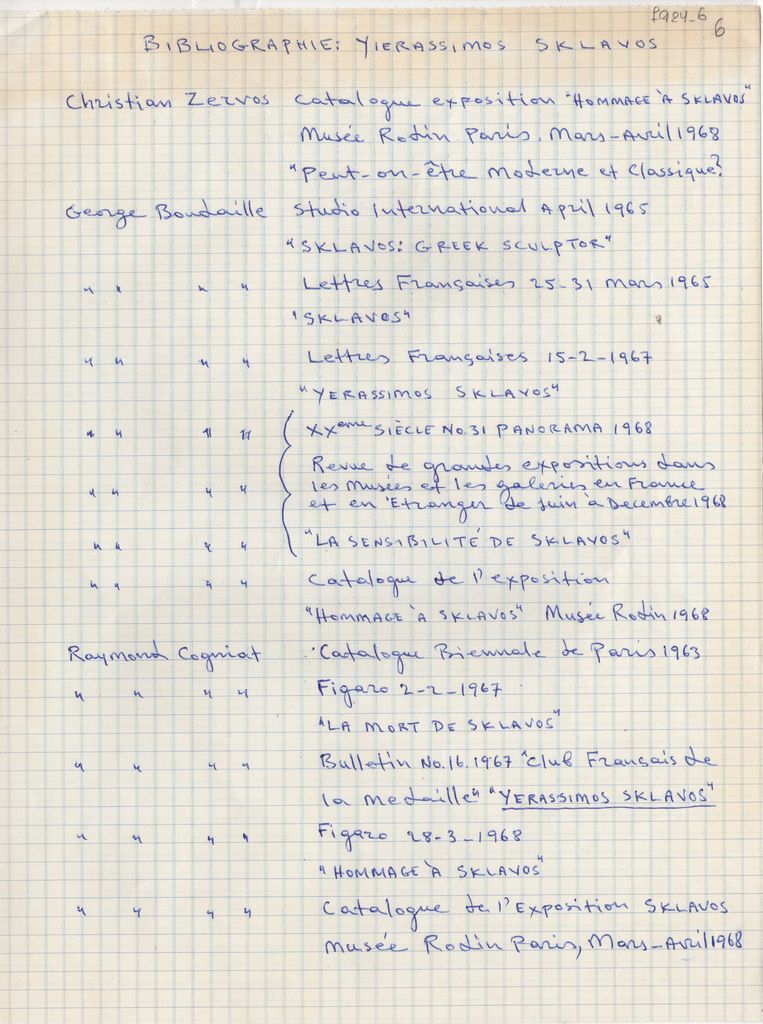 fq24-6
6
BIBLIOGRAPHIE: YIERASSIMOS SKLAVOS
Christian Zervos Catalogue exposition "HOMMAGE À SKLAVOS"
Musée Rodin Paris, Mars-Avril 1968
"Peut-on-être Moderne et Classique?
George Boudaille Studio International April 1965
"SKLAVOS: GREEK SCULPTOR"
" " " " Lettres Françaises 25-31 Mars 1965
"SKLAVOS"
" " " " Lettres Françaises 15-2-1967
"YERASSIMOS SKLAVOS"
" " " " XXeme SIÈCLE No. 31 PANORAMA 1968
Revue de grandes expositions dans
" " " " les Musées et les galeries en France
et en 'Etranger de juin à Decembre 1968
" " " " "LA SENSIBILITÉ DE SKLAVOS"
" " " " Catalogue de l'exposition
"HOMMAGE À SKLAVOS" Musée Rodin 1968
Raymond Cogniat Catalogue Biennale de Paris 1963
" " " " Figaro 2-2-1967
"LA MORT DE SKLAVOS"
" " " " Bulletin No. 16. 1967 "Club Français de
la medaille" "YERASSIMOS SKLAVOS"
" " " " Figaro 28-3-1968
"HOMMAGE À SKLAVOS"
" " " " Catalogue de l'Exposition SKLAVOS
Musée Rodin Paris, Mars-Avril 1968